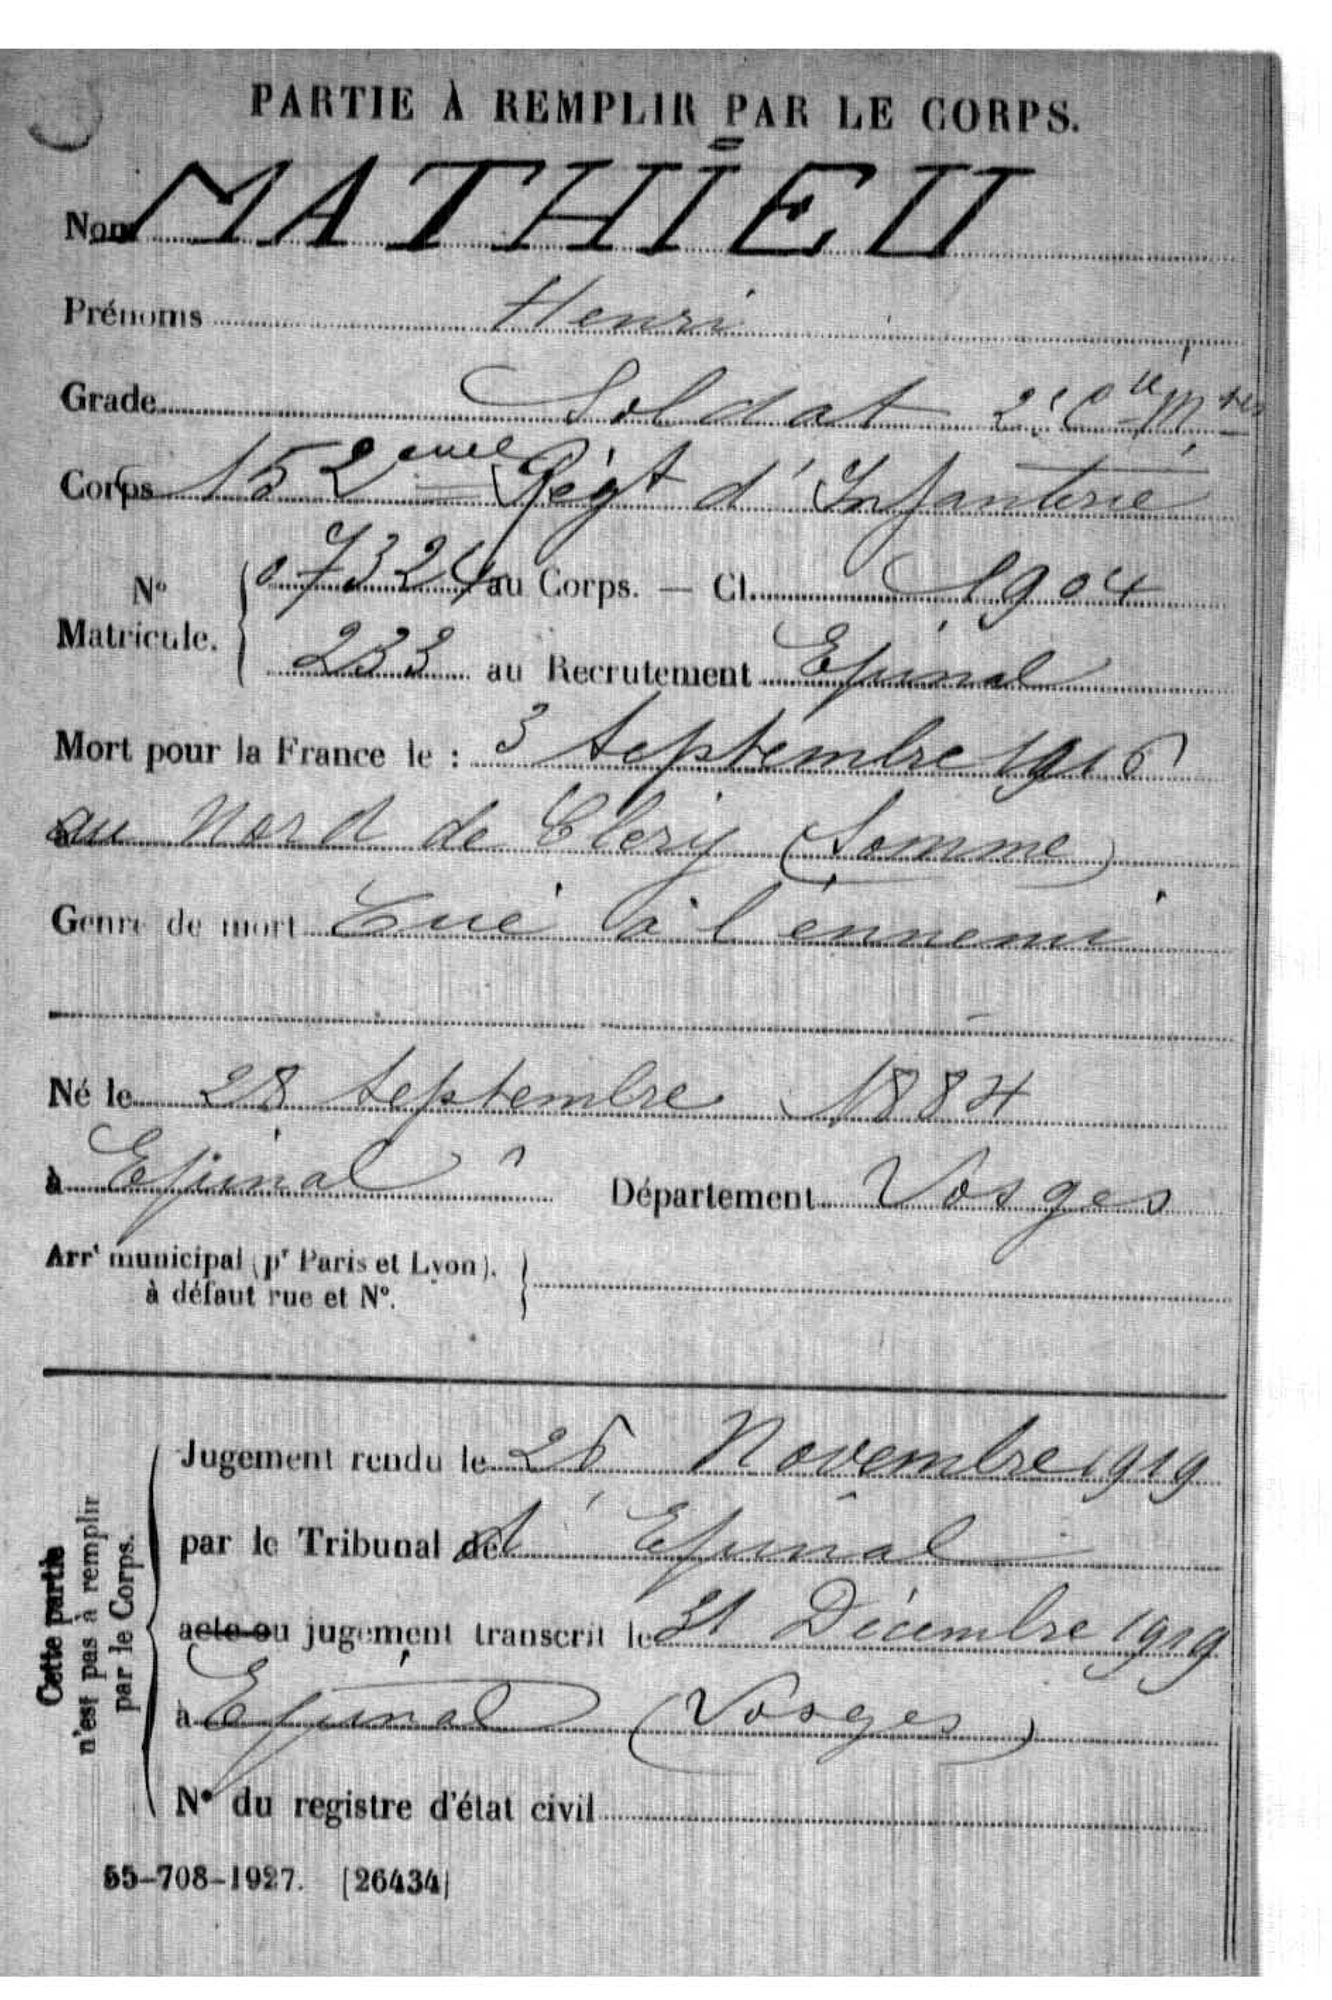 PARTIE À REMPLIR PAR LE CORPS.
Nom MATHIEU
Prénoms Henri
Grade Soldat 2e Cie Mtes
Corps 152eme Régt d'Infanterie
No Matricule. 07324 au Corps. — Cl. 1904
233 au Recrutement Epinal
Mort pour la France le : 3 Septembre 1916
au Nord de Clery (Somme)
Genre de mort Tué à l'ennemi
Né le 28 Septembre 1884
à Epinal Département Vosges
Arrt municipal (pr Paris et Lyon).
à défaut rue et No.
Cette partie
n'est pas à remplir
par le Corps.
Jugement rendu le 26 Novembre 1919
par le Tribunal d'Epinal
acte ou jugement transcrit le 31 Décembre 1919
à Epinal (Vosges)
No du registre d'état civil
55-708-1927. [26434]